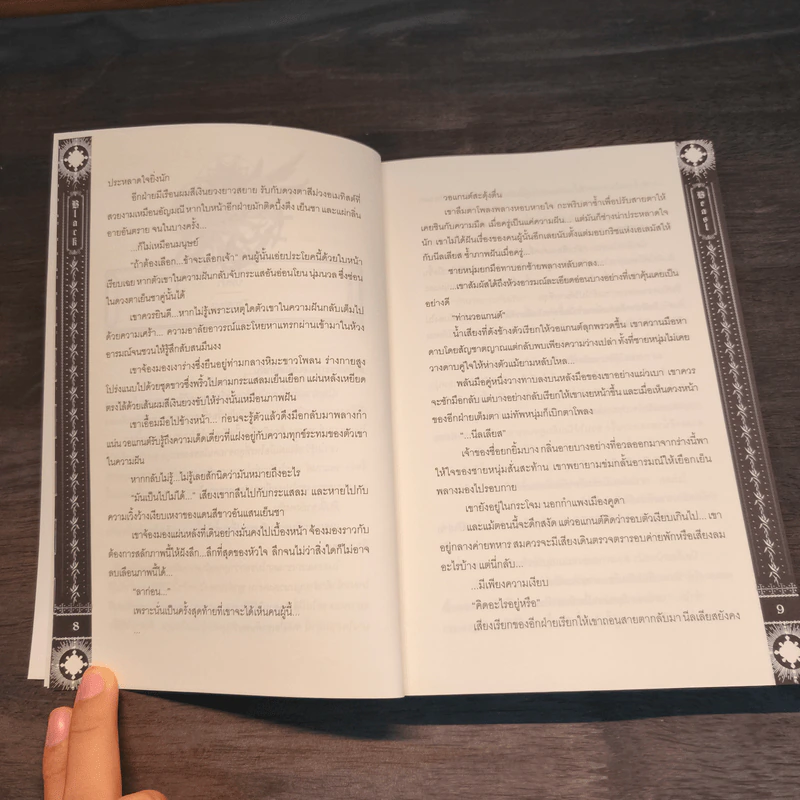 Black
ประหลาดใจยิ่งนัก
อีกฝ่ายมีเรือนผมสีเงินยวงยาวสยาย รับกับดวงตาสีม่วงอเมทิสต์ที่
สวยงามเหมือนอัญมณี หากใบหน้าอีกฝ่ายมักติดบึ้งตึง เย็นชา และแผ่กลิ่น
อายอันตราย จนในบางครั้ง...
...ก็ไม่เหมือนมนุษย์
"ถ้าต้องเลือก...ข้าจะเลือกเจ้า" คนผู้นั้นเอ่ยประโยคนี้ด้วยใบหน้า
เรียบเฉย หากตัวเขาในความฝันกลับจับกระแสอันอ่อนโยน นุ่มนวล ซึ่งซ่อน
ในดวงตาเย็นชาคู่นั้นได้
เขาควรยินดี...หากไม่รู้เพราะเหตุใดตัวเขาในความฝันกลับเต็มไป
ด้วยความเศร้า... ความอาลัยอาวรณ์และโหยหาแทรกผ่านเข้ามาในห้วง
อารมณ์จนชวนให้รู้สึกสับสนมึนงง
เขาจ้องมองเงาร่างซึ่งยืนอยู่ท่ามกลางหิมะขาวโพลน ร่างกายสูง
โปร่งแนบไปด้วยชุดขาวซึ่งพริ้วไปตามกระแสลมเย็นเยือก แผ่นหลังเหยียด
ตรงไล้ด้วยเส้นผมสีเงินยวงขับให้ร่างนั้นเหมือนภาพฝัน
เขาเอื้อมมือไปข้างหน้า... ก่อนจะรู้ตัวแล้วดึงมือกลับมาพลางกำ
แน่น วอแกนต์รับรู้ถึงความเด็ดเดี่ยวที่แฝงอยู่กับความทุกข์ระทมของตัวเขา
ในความฝัน
หากกลับไม่รู้...ไม่รู้เลยสักนิดว่ามันหมายถึงอะไร
"มันเป็นไปไม่ได้..." เสียงเขากลืนไปกับกระแสลม และหายไปกับ
ความเวิ้งว้างเงียบเหงาของแดนสีขาวอันแสนเย็นชา
เขาจ้องมองแผ่นหลังที่เดินอย่างมั่นคงไปเบื้องหน้า จ้องมองราวกับ
ต้องการสลักภาพนี้ให้ฝังลึก...ลึกที่สุดของหัวใจ ลึกจนไม่ว่าสิ่งใดก็ไม่อาจ
ลบเลือนภาพนี้ได้...
"ลาก่อน..."
เพราะนั่นเป็นครั้งสุดท้ายที่เขาจะได้เห็นคนผู้นี้...
...
8
Beast
วอแกนต์สะดุ้งตื่น
เขาลืมตาโพลงพลางหอบหายใจ กะพริบตาซ้ำเพื่อปรับสายตาให้
เคยชินกับความมืด เมื่อครู่เป็นแค่ความฝัน... แต่มันก็ช่างน่าประหลาดใจ
นัก เขาไม่ได้ฝันเรื่องของคนผู้นั้นอีกเลยนับตั้งแต่มอบกริชแห่งเอเลมัสให้
กับนีลเลียส ซ้ำภาพฝันเมื่อครู่...
ชายหนุ่มยกมือทาบอกซ้ายพลางหลับตาลง...
...เขาสัมผัสได้ถึงห้วงอารมณ์ละเอียดอ่อนบางอย่างที่เขาคุ้นเคยเป็น
อย่างดี
"ท่านวอแกนต์"
น้ำเสียงที่ดังข้างตัวเรียกให้วอแกนต์ลุกพรวดขึ้น เขาควานมือหา
ดาบโดยสัญชาตญาณแต่กลับพบเพียงความว่างเปล่า ทั้งที่ชายหนุ่มไม่เคย
วางดาบคู่ใจให้ห่างตัวแม้ยามหลับใหล...
พลันมือคู่หนึ่งวางทาบลงบนหลังมือของเขาอย่างแผ่วเบา เขาควร
จะชักมือกลับ แต่บางอย่างกลับเรียกให้เขาเงยหน้าขึ้น และเมื่อเห็นดวงหน้า
ของอีกฝ่ายเต็มตา แม่ทัพหนุ่มก็เบิกตาโพลง
"...นีลเลียส"
เจ้าของชื่อยกยิ้มบาง กลิ่นอายบางอย่างที่อวลออกมาจากร่างนี้พา
ให้ใจของชายหนุ่มสั่นสะท้าน เขาพยายามข่มกลั้นอารมณ์ให้เยือกเย็น
พลางมองไปรอบกาย
เขายังอยู่ในกระโจม นอกกำแพงเมืองคูดา
และแม้ตอนนี้จะดึกสงัด แต่วอแกนต์คิดว่ารอบตัวเงียบเกินไป... เขา
อยู่กลางค่ายทหาร สมควรจะมีเสียงเดินตรวจตรารอบค่ายพักหรือเสียงลม
อะไรบ้าง แต่นี่กลับ...
...มีเพียงความเงียบ
"คิดอะไรอยู่หรือ"
เสียงเรียกของอีกฝ่ายเรียกให้เขาถอนสายตากลับมา นีลเลียสยังคง
9